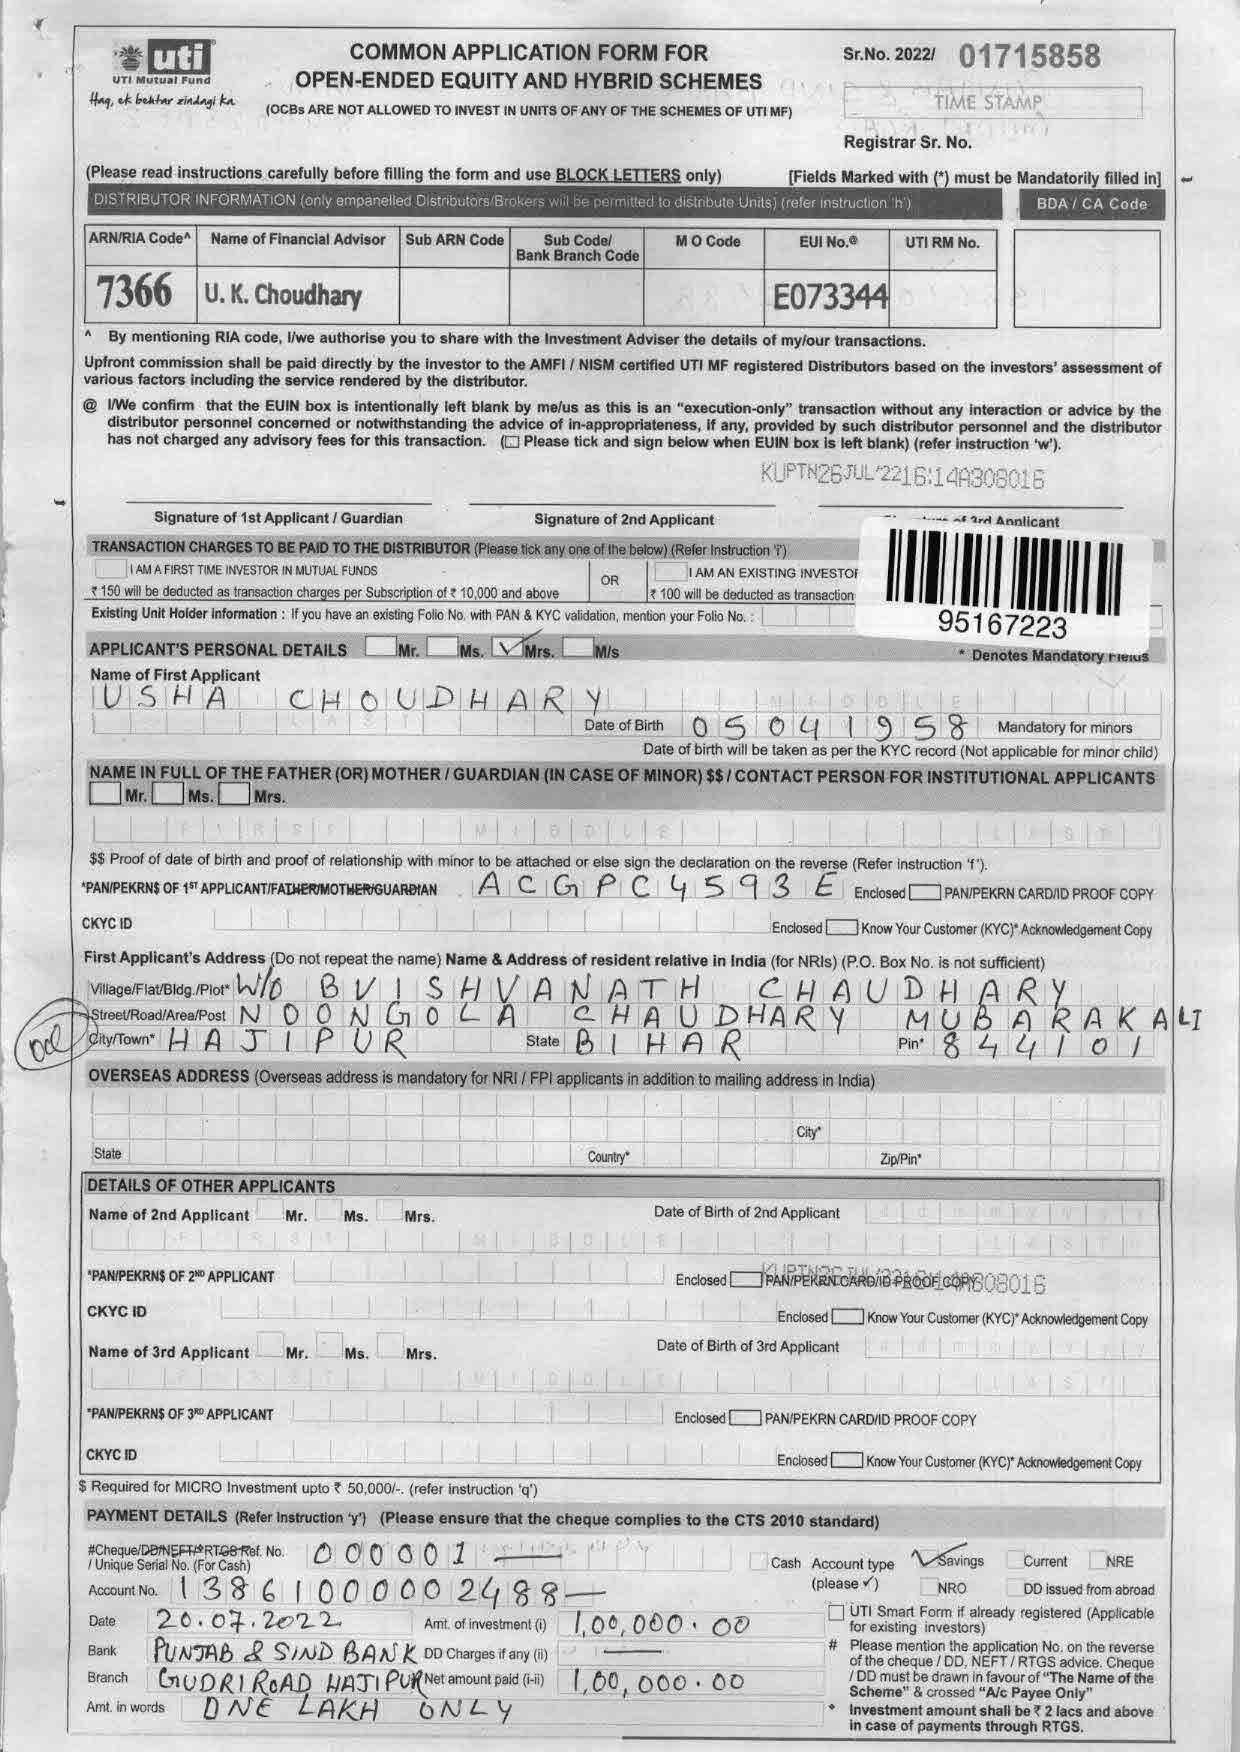 uti
UTI Mutual Fund
Haq, ek behtar zindagi ka
COMMON APPLICATION FORM FOR
OPEN-ENDED EQUITY AND HYBRID SCHEMES
(OCBs ARE NOT ALLOWED TO INVEST IN UNITS OF ANY OF THE SCHEMES OF UTI MF)
Sr.No. 2022/ 01715858
TIME STAMP
Registrar Sr. No.
(Please read instructions carefully before filling the form and use BLOCK LETTERS only) [Fields Marked with (*) must be Mandatorily filled in]
DISTRIBUTOR INFORMATION (only empanelled Distributors/Brokers will be permitted to distribute Units) (refer instruction 'h') BDA / CA Code
ARN/RIA Code^ Name of Financial Advisor Sub ARN Code Sub Code/ Bank Branch Code M O Code EUI No.@ UTI RM No.
7366 U. K. Choudhary E073344
^ By mentioning RIA code, I/we authorise you to share with the Investment Adviser the details of my/our transactions.
Upfront commission shall be paid directly by the investor to the AMFI / NISM certified UTI MF registered Distributors based on the investors' assessment of
various factors including the service rendered by the distributor.
@ I/We confirm that the EUIN box is intentionally left blank by me/us as this is an "execution-only" transaction without any interaction or advice by the
distributor personnel concerned or notwithstanding the advice of in-appropriateness, if any, provided by such distributor personnel and the distributor
has not charged any advisory fees for this transaction. (☐ Please tick and sign below when EUIN box is left blank) (refer instruction 'w').
KUPTN26JUL'2216:14A308016
Signature of 1st Applicant / Guardian Signature of 2nd Applicant of 3rd Applicant
TRANSACTION CHARGES TO BE PAID TO THE DISTRIBUTOR (Please tick any one of the below) (Refer Instruction 'i')
I AM A FIRST TIME INVESTOR IN MUTUAL FUNDS OR I AM AN EXISTING INVESTOR
₹ 150 will be deducted as transaction charges per Subscription of ₹ 10,000 and above ₹ 100 will be deducted as transaction
Existing Unit Holder information : If you have an existing Folio No. with PAN & KYC validation, mention your Folio No. :
95167223
APPLICANT'S PERSONAL DETAILS Mr. Ms. ✓ Mrs. M/s * Denotes Mandatory Fields
Name of First Applicant
USHA CHOUDHARY
Date of Birth 05041958 Mandatory for minors
Date of birth will be taken as per the KYC record (Not applicable for minor child)
NAME IN FULL OF THE FATHER (OR) MOTHER / GUARDIAN (IN CASE OF MINOR) $$ / CONTACT PERSON FOR INSTITUTIONAL APPLICANTS
Mr. Ms. Mrs.
FIRST MIDDLE LAST
$$ Proof of date of birth and proof of relationship with minor to be attached or else sign the declaration on the reverse (Refer instruction 'f').
*PAN/PEKRN$ OF 1ST APPLICANT/FATHER/MOTHER/GUARDIAN ACGPC4593E Enclosed PAN/PEKRN CARD/ID PROOF COPY
CKYC ID Enclosed Know Your Customer (KYC)* Acknowledgement Copy
First Applicant's Address (Do not repeat the name) Name & Address of resident relative in India (for NRIs) (P.O. Box No. is not sufficient)
Village/Flat/Bldg./Plot* W/o BVISHVANATH CHAUDHARY
Street/Road/Area/Post NOONGOLA CHAUDHARY MUBARAKALI
City/Town* HAJIPUR State BIHAR Pin* 844101
OVERSEAS ADDRESS (Overseas address is mandatory for NRI / FPI applicants in addition to mailing address in India)
City*
State Country* Zip/Pin*
DETAILS OF OTHER APPLICANTS
Name of 2nd Applicant Mr. Ms. Mrs. Date of Birth of 2nd Applicant
FIRST MIDDLE LAST
*PAN/PEKRN$ OF 2ND APPLICANT Enclosed PAN/PEKRN CARD/ID PROOF COPY
KUPTN26JUL'2216:14A308016
CKYC ID Enclosed Know Your Customer (KYC)* Acknowledgement Copy
Name of 3rd Applicant Mr. Ms. Mrs. Date of Birth of 3rd Applicant
FIRST MIDDLE LAST
*PAN/PEKRN$ OF 3RD APPLICANT Enclosed PAN/PEKRN CARD/ID PROOF COPY
CKYC ID Enclosed Know Your Customer (KYC)* Acknowledgement Copy
$ Required for MICRO Investment upto ₹ 50,000/-. (refer instruction 'q')
PAYMENT DETAILS (Refer Instruction 'y') (Please ensure that the cheque complies to the CTS 2010 standard)
#Cheque/DD/NEFT/*RTGS Ref. No. 000001 Cash Account type ✓ Savings Current NRE
/ Unique Serial No. (For Cash) (please ✓) NRO DD issued from abroad
Account No. 13861000002488
Date 20.07.2022 Amt. of investment (i) 1,00,000.00
Bank PUNJAB & SIND BANK DD Charges if any (ii)
Branch GUDRI ROAD HAJIPUR Net amount paid (i-ii) 1,00,000.00
Amt. in words ONE LAKH ONLY
UTI Smart Form if already registered (Applicable
for existing investors)
# Please mention the application No. on the reverse
of the cheque / DD, NEFT / RTGS advice. Cheque
/ DD must be drawn in favour of "The Name of the
Scheme" & crossed "A/c Payee Only"
* Investment amount shall be ₹ 2 lacs and above
in case of payments through RTGS.